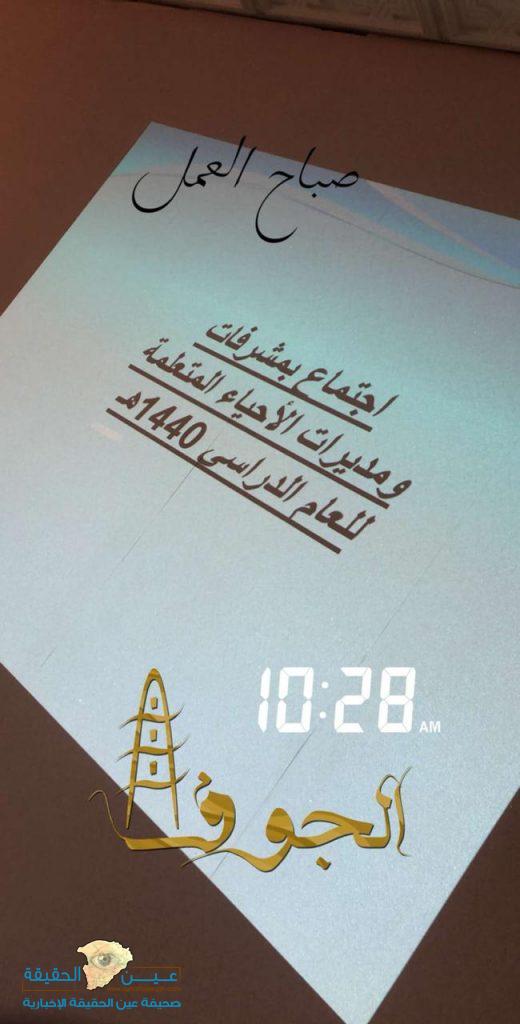 صباح العمل
اجتماع بمشرفات
ومديرات الأحياء المتعلمة
للعام الدراسي 1440هـ
10:28 AM
الجوف
عين الحقيقة
صحيفة عين الحقيقة الإخبارية